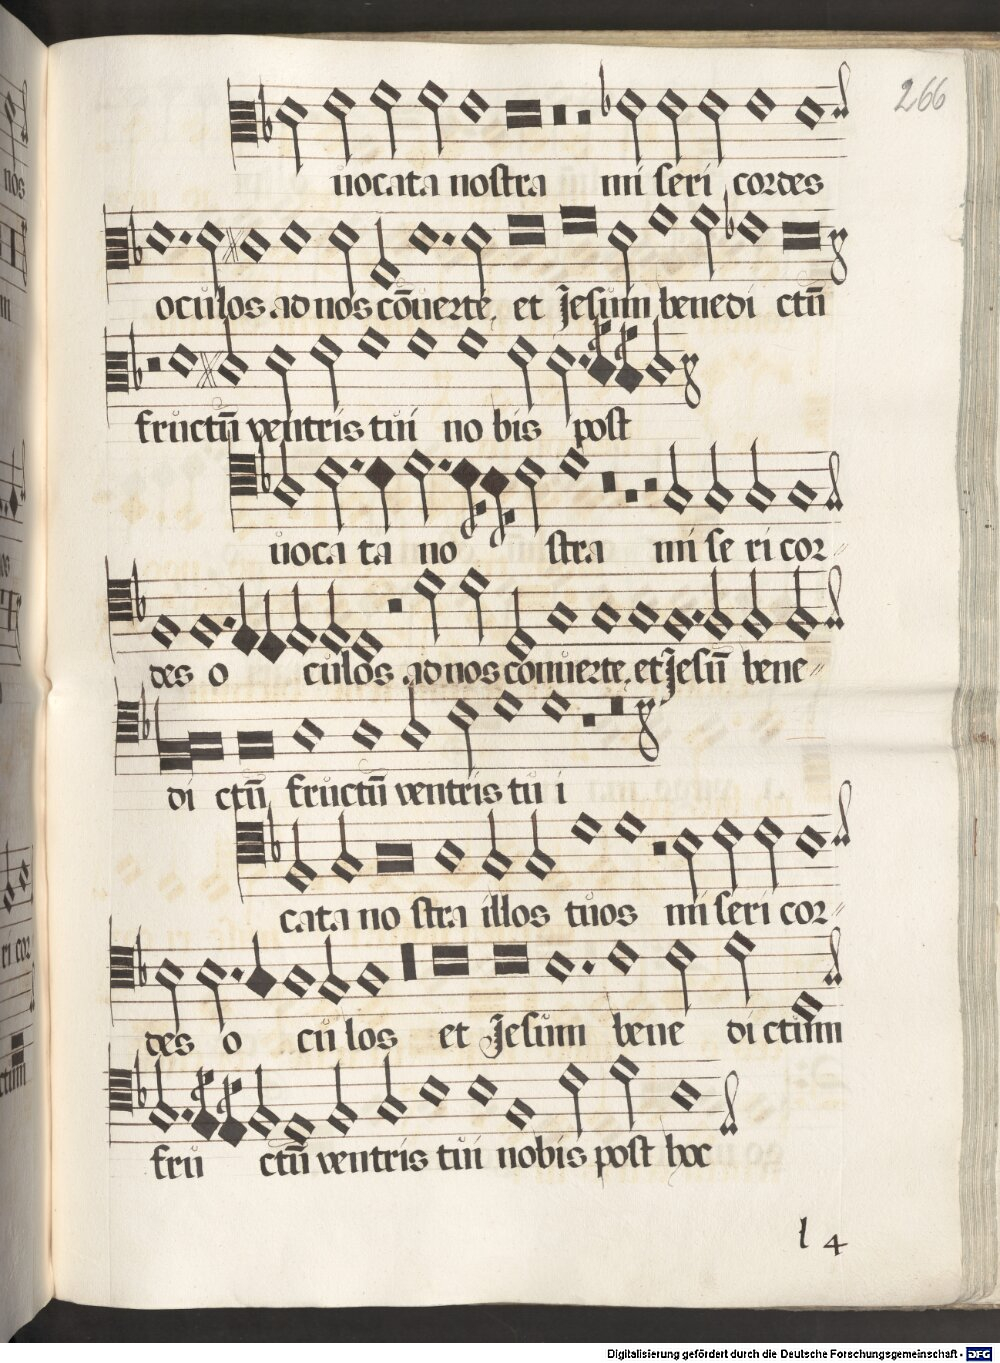 266
uocata nostra mi seri cordes
oculos ad nos cōuerte, et Jesum benedi ctū
fructū ventris tui no bis post
uoca ta no stra mi se ri cor〃
des o culos ad nos conuerte, et Jesū bene〃
di ctū fructū ventris tu i
cata no stra illos tuos mi seri cor〃
des o cu los et Jesum bene di ctum
fru ctū ventris tui nobis post hoc
l 4
Digitalisierung gefördert durch die Deutsche Forschungsgemeinschaft - DFG